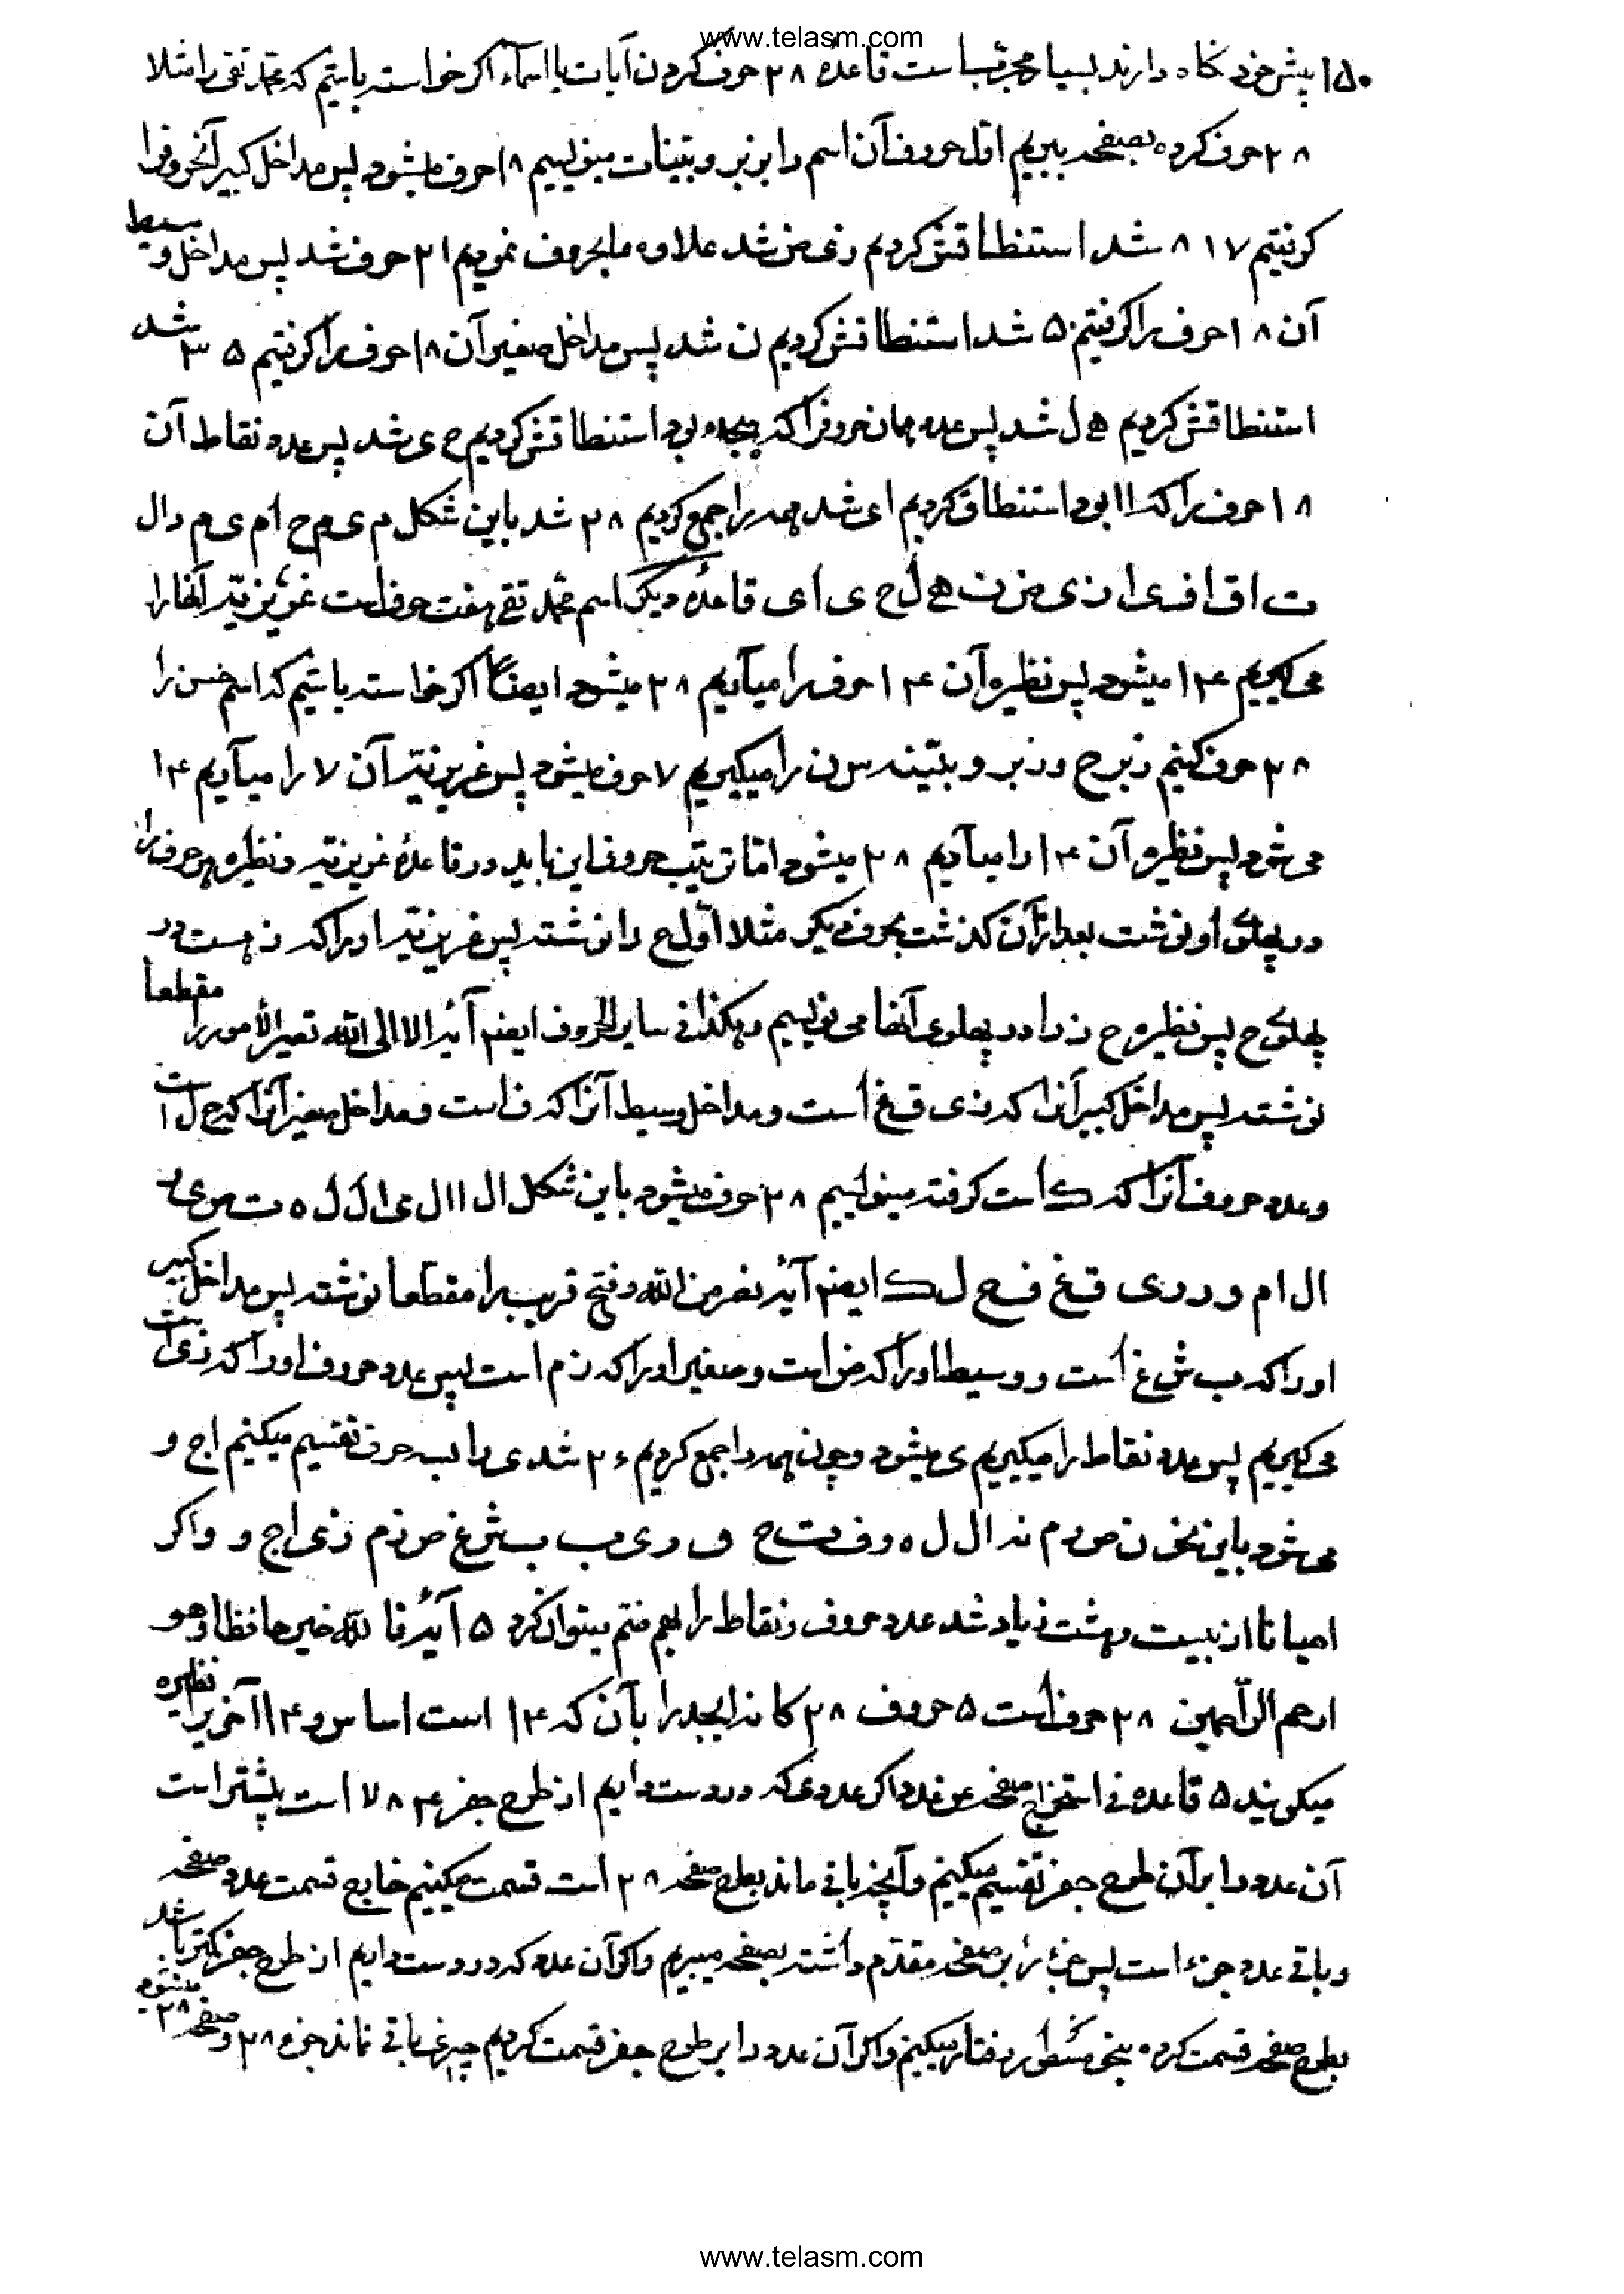 www.telasm.com
۱۵۰ پیش خود نگاه دارند بسیار مجربست قاعده ۲۸ حرف کردن آیات یا اسماء اگر خواسته باشیم که محمد تقی را مثلا
۲۸ حرف کرده بصفحه ببریم اول حروف آن اسم را بزبر و بینات مینویسیم ۱۸ حرف میشود پس مداخل کبیر آنحروف را
گرفتیم ۸۱۷ شد استنطاقش کردیم زی ض شد علاوه مابحروف نمودیم ۲۱ حرف شد پس مداخل وسیط
آن ۱۸ حرف را گرفتیم ۵۰ شد استنطاقش کردیم ن شد پس مداخل صغیر آن ۱۸ حرف را گرفتیم ۳۵ شد
استنطاقش کردیم ه ل شد پس عدد همان حروف را که هیجده بود استنطاقش کردیم ح ی شد پس عدد نقاط آن
۱۸ حرف را که ۱۱ بود استنطاق کردیم ای شد همه را جمع کردیم ۲۸ شد باین شکل م ی م ح ا م ی م د ال
ت ا ق ا ف ی ا ز ی ض ن ه ل ح ی ا ی قاعدهٔ دیگر اسم محمد تقی هفت حرفست غریزیه آنها را
می گیریم ۱۴ میشود پس نظیره آن ۱۴ حرف را میآریم ۲۸ میشود ایضا اگر خواسته باشیم که اسم حسن را
۲۸ حرف کنیم زبر ح و زبر و بینه س ن را میگیریم ۷ حرف میشود پس غریزیه آن ۷ را میآریم ۱۴
می شود پس نظیره آن ۱۴ را میآریم ۲۸ میشود اما ترتیب حروف این باید در قاعدهٔ غریزیه و نظیره هر حرف را
در پهلوی او نوشت بعد از آن گذشت بحرف دیگر مثلا اول ح را نوشته پس غریزیه او را که ز هست در
پهلوی ح پس نظیره ح ز را در پهلوی آنها می نویسیم و هکذا فی سایر الحروف ایضا آیه الا الی الله تصیر الامور را مقطعا
نوشته پس مداخل کبیر آنرا که ز ی ق غ است و مداخل وسیط آنرا که ف است و مداخل صغیر آنرا که ح ل است
و عدد حروف آنرا که ک است گرفته مینویسیم ۲۸ حرف میشود باین شکل ال ا ا ل ی ا ل ل ه ت ص ی ر
ال ا م و ر ز ی ق غ ف ح ل ک ایضا آیه نصر من الله و فتح قریب را مقطعا نوشته پس مداخل کبیر
او را که ب ش غ است و وسیط او را که ض است و صغیر او را که ز م است پس عدد حروف او را که ز ی است
می گیریم پس عدد نقاط را میگیریم ی میشود و چون همه را جمع کردیم ۲۶ شد ی را بسه حرف تقسیم میکنیم ا ج و
می شود باین نحو ن ص ر م ن ال ل ه و ف ت ح ق ر ی ب ب ش غ ض ز م ز ی ا ج و و اگر
احیانا از بیست و هشت زیاد شد عدد حروف و نقاط را بهم ضم میتوان کرد ۵ آیه فالله خیر حافظا و هو
ارحم الراحمین ۲۸ حرف است ۵ حروف ۲۸ کانه ابجد را بآن که ۱۴ است اساس و ۱۴ آخر را نظیره
میگویند ۵ قاعده فی استخراج صفحه عن عدد اگر عددی که در دست داریم از طرح جفر ۷۸۴ است بیشتر است
آن عدد را بر آن طرح جفر تقسیم میکنیم و آنچه باقی ماند بطرح صفحه ۲۸ است قسمت میکنیم خارج قسمت عدد صفحه
و باقی عدد جزء است پس جزء را بر صفحه مقدم داشته بصفحه میبریم و اگر آن عدد که در دست داریم از طرح جفر کمتر باشد
بطرح صفحه قسمت کرده بنحو مسطور رفتار میکنیم و اگر آن عدد را بر طرح جفر قسمت کردیم چیزی باقی نماند جزء ۲۸ و صفحه ۲۸ میشود
www.telasm.com